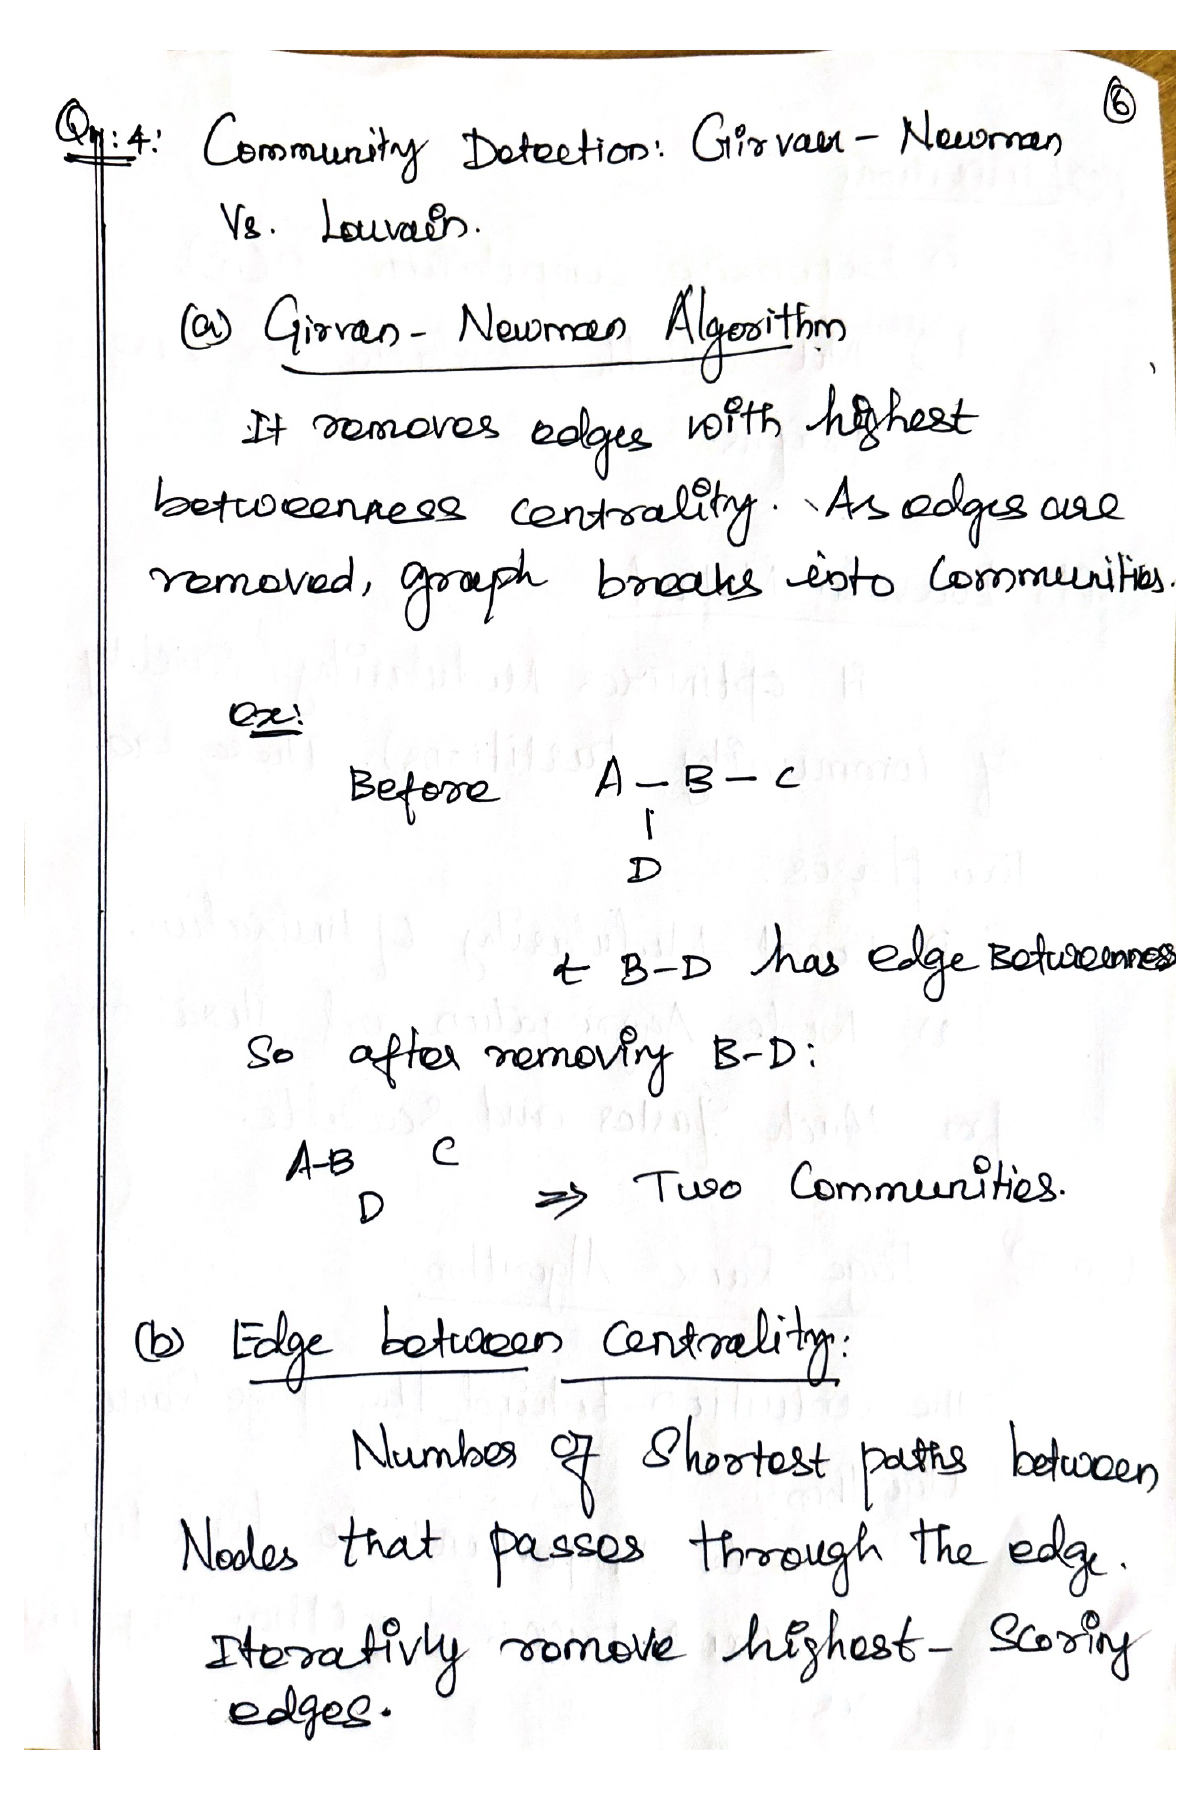 6
Qn:4: Community Detection: Girvan - Newman
Vs. Louvain.
(a) Girvan - Newman Algorithm
It removes edges with highest
betweenness centrality. As edges are
removed, graph breaks into Communities.
ex:
Before A - B - C
|
D
B-D has edge Betweenness
So after removing B-D:
A-B C
D ⇒ Two Communities.
(b) Edge between centrality:
Number of Shortest paths between
Nodes that passes through the edge.
Iterativly remove highest - Scoring
edges.